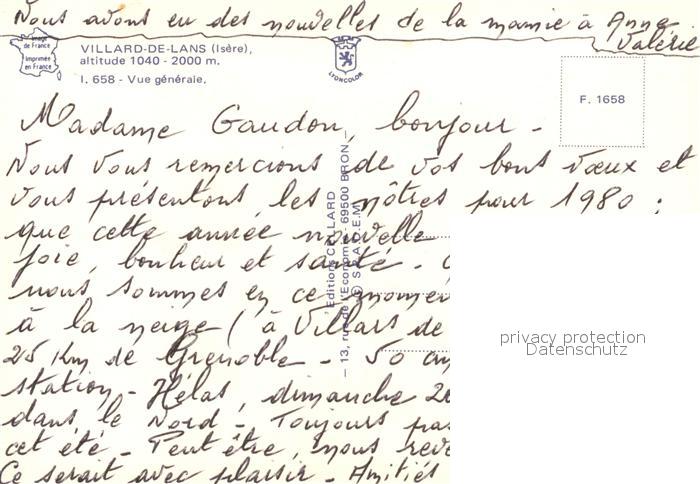 Nous avons eu des nouvelles de la mamie à Anne
Valérie
Image
de France
Imprimée
en France
VILLARD-DE-LANS (Isère),
altitude 1040 - 2000 m.
I. 658 - Vue générale.
LYONCOLOR
F. 1658
Madame Gaudon, bonjour -
Nous vous remercions de vos bons vœux et
vous présentons les nôtres pour 1980 :
que cette année nouvelle
joie, bonheur et santé -
nous sommes en ce momen
à la neige ( à Villars de
25 Km de Grenoble - 50 an
station - Hélas, dimanche 20
dans le Nord - Toujours pas
cet été - Peut être, nous reve
Ce serait avec plaisir - Amitiés
Editions CELLARD
- 13, rue de l'Economie - 69500 BRON -
© S.P.A.D.E.M.
privacy protection
Datenschutz